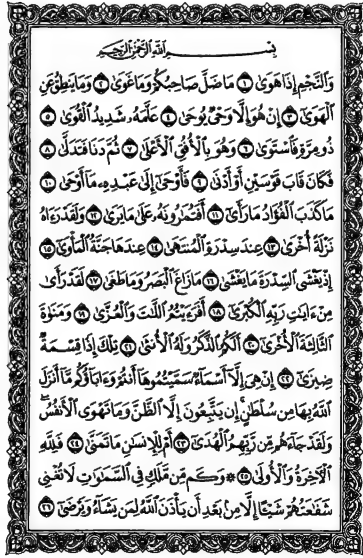 بِسْمِ اللَّهِ الرَّحْمَٰنِ الرَّحِيمِ
وَالنَّجْمِ إِذَا هَوَىٰ ١ مَا ضَلَّ صَاحِبُكُمْ وَمَا غَوَىٰ ٢ وَمَا يَنطِقُ عَنِ
الْهَوَىٰ ٣ إِنْ هُوَ إِلَّا وَحْيٌ يُوحَىٰ ٤ عَلَّمَهُ شَدِيدُ الْقُوَىٰ ٥
ذُو مِرَّةٍ فَاسْتَوَىٰ ٦ وَهُوَ بِالْأُفُقِ الْأَعْلَىٰ ٧ ثُمَّ دَنَا فَتَدَلَّىٰ ٨
فَكَانَ قَابَ قَوْسَيْنِ أَوْ أَدْنَىٰ ٩ فَأَوْحَىٰ إِلَىٰ عَبْدِهِ مَا أَوْحَىٰ ١٠
مَا كَذَبَ الْفُؤَادُ مَا رَأَىٰ ١١ أَفَتُمَارُونَهُ عَلَىٰ مَا يَرَىٰ ١٢ وَلَقَدْ رَآهُ
نَزْلَةً أُخْرَىٰ ١٣ عِندَ سِدْرَةِ الْمُنتَهَىٰ ١٤ عِندَهَا جَنَّةُ الْمَأْوَىٰ ١٥
إِذْ يَغْشَى السِّدْرَةَ مَا يَغْشَىٰ ١٦ مَا زَاغَ الْبَصَرُ وَمَا طَغَىٰ ١٧ لَقَدْ رَأَىٰ
مِنْ آيَاتِ رَبِّهِ الْكُبْرَىٰ ١٨ أَفَرَأَيْتُمُ اللَّاتَ وَالْعُزَّىٰ ١٩ وَمَنَاةَ
الثَّالِثَةَ الْأُخْرَىٰ ٢٠ أَلَكُمُ الذَّكَرُ وَلَهُ الْأُنثَىٰ ٢١ تِلْكَ إِذًا قِسْمَةٌ
ضِيزَىٰ ٢٢ إِنْ هِيَ إِلَّا أَسْمَاءٌ سَمَّيْتُمُوهَا أَنتُمْ وَآبَاؤُكُم مَّا أَنزَلَ
اللَّهُ بِهَا مِن سُلْطَانٍ ۚ إِن يَتَّبِعُونَ إِلَّا الظَّنَّ وَمَا تَهْوَى الْأَنفُسُ ۖ
وَلَقَدْ جَاءَهُم مِّن رَّبِّهِمُ الْهُدَىٰ ٢٣ أَمْ لِلْإِنسَانِ مَا تَمَنَّىٰ ٢٤ فَلِلَّهِ
الْآخِرَةُ وَالْأُولَىٰ ٢٥ ۞ وَكَم مِّن مَّلَكٍ فِي السَّمَاوَاتِ لَا تُغْنِي
شَفَاعَتُهُمْ شَيْئًا إِلَّا مِن بَعْدِ أَن يَأْذَنَ اللَّهُ لِمَن يَشَاءُ وَيَرْضَىٰ ٢٦